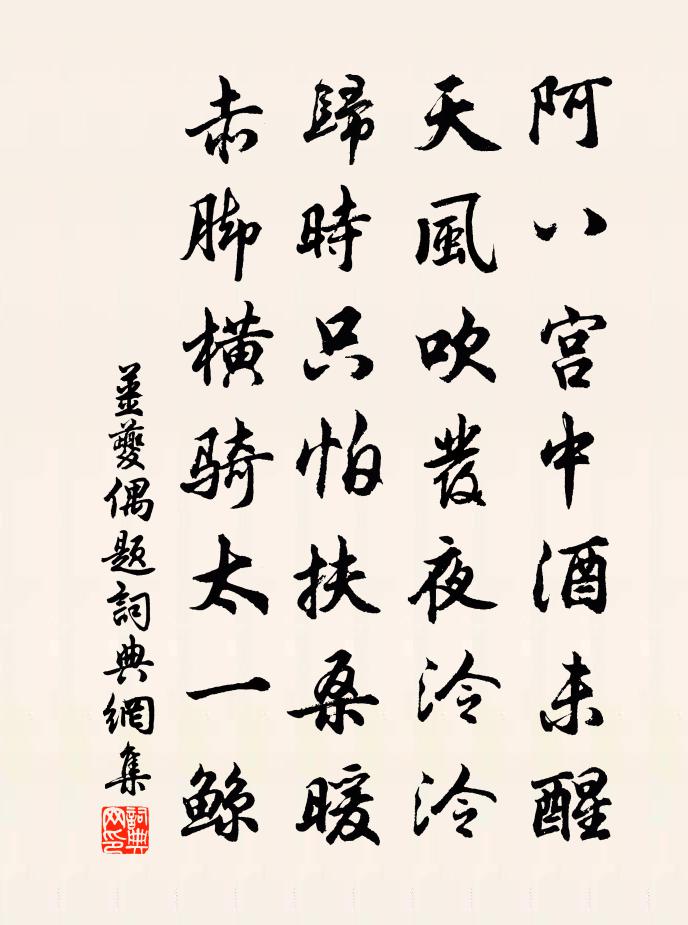 阿八宫中酒未醒
天風吹髮夜泠泠
歸時只怕扶桑暖
赤脚橫骑太一鲸
姜夔偶题詞典網集
詞典網印